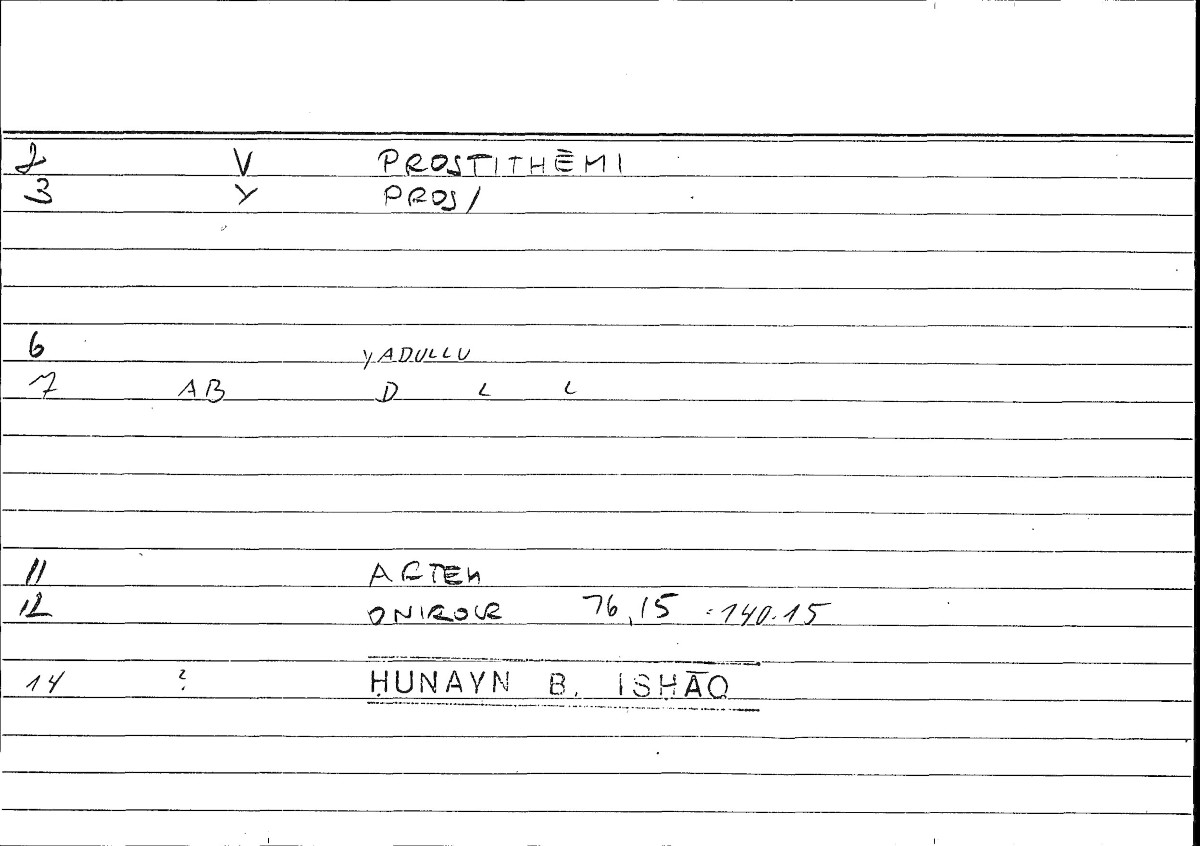 2 V PROSTITHĒMI
3 Y PROS/
6 YADULLU
7 AB D L L
11 ARTEM
12 ONIROCR 76,15 =140.15
14 ? ḤUNAYN B. ISḤĀQ